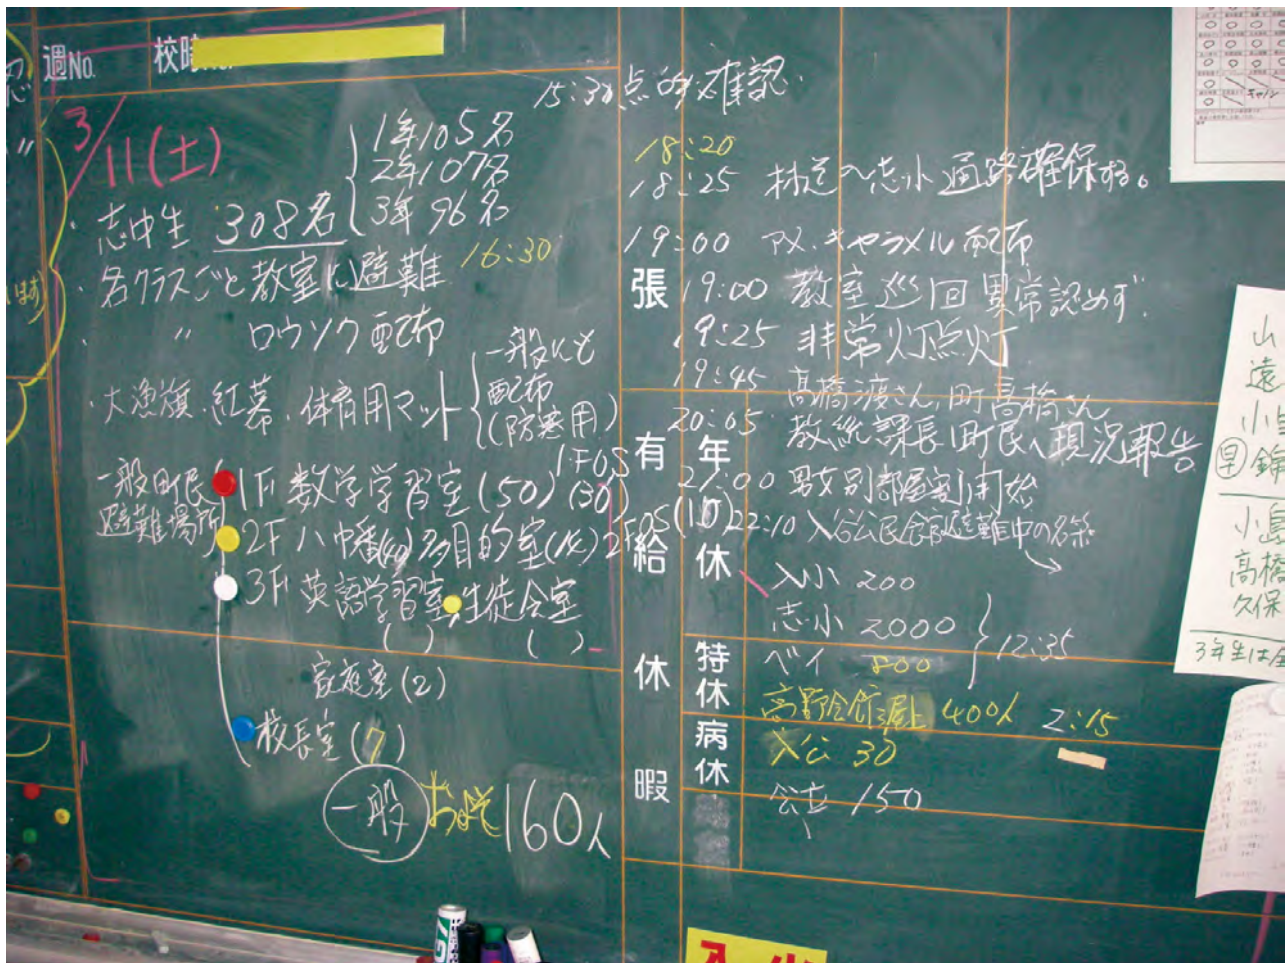 週No.
校時
3/11(土)
1年105名
2年107名
3年 96名
・志中生 308名
・各クラスごと教室に避難 16:30
〃 ロウソク配布
・大漁旗・紅幕・体育用マット
一般にも
配布
(防寒用)
一般町民
避難場所
1F 数学学習室(50)
1FOS
(30)
2F 八幡(40) 多目的室(14) 2FOS(10)
3F 英語学習室 生徒会室
( ) ( )
家庭室(2)
校長室(7)
一般 およそ160人
15:30点呼確認
18:20
18:25 林道〜志小通路確保する。
19:00 アメ.キャラメル配布
張
19:00 教室巡回異常認めず.
19:25 非常灯点灯
19:45 高橋渡さん,町高橋さん
20:05 教総課長 町民へ現況報告
21:00 男女別部屋割開始
22:10 入谷公民館避難中の名簿
有給休暇
年休
特休
病休
入小 200
志小 2000
ベイ 800
12:35
高野会館屋上 400人 2:15
入公 30
公立 150
山
遠
小
早 錦
小島
高橋
久保
3年生は全